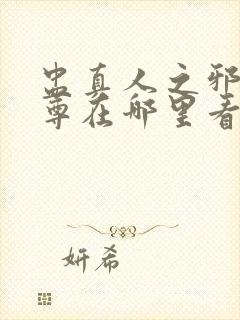 蛊真人之邪
尊在哪里看
妍希